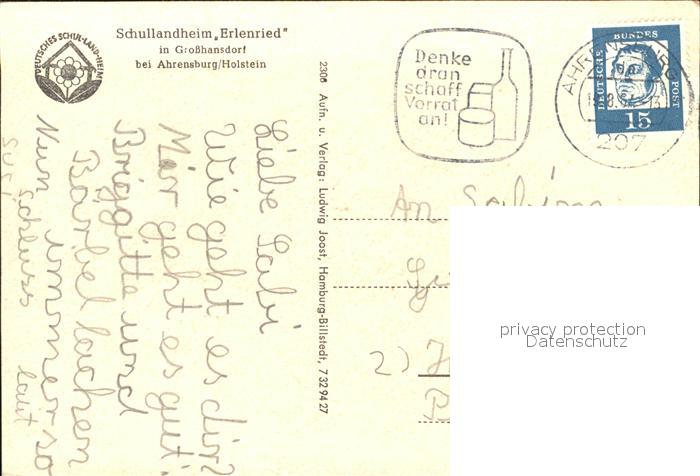 DEUTSCHES SCHUL-LAND-HEIM
Schullandheim „Erlenried"
in Großhansdorf
bei Ahrensburg/Holstein
Liebe Gabi
Wie geht es dir?
Mir geht es gut.
Brigitte und
Bärbel lachen
immer so
laut
Nun
Schluss
Susi
2308 Aufn. u. Verlag: Ludwig Joost, Hamburg-Billstedt, 7 32 94 27
Denke
dran
schaff
Vorrat
an!
AHRENSBURG
207
DEUTSCHE BUNDESPOST
15
An
2)
privacy protection
Datenschutz